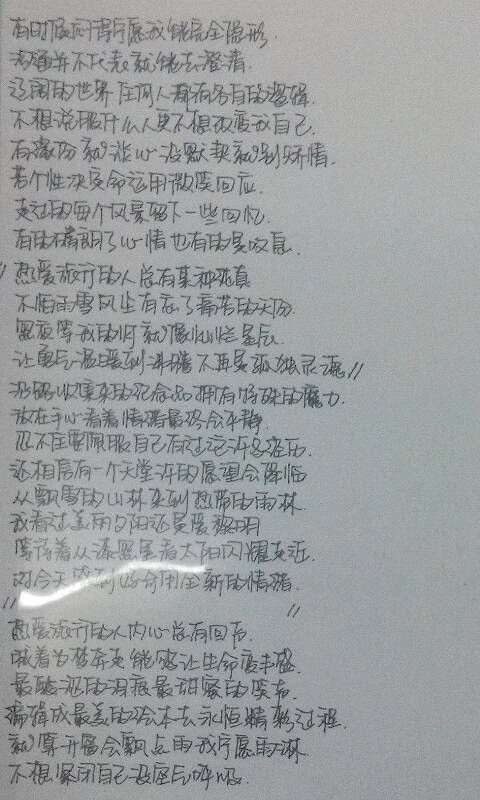 有时候问得宁愿我能完全隐形
沟通并不代表就能去澄清
辽阔的世界任何人都有各自的逻辑
不想说服什么人更不想改变我自己
有缘份就谈心没默契就别矫情
若个性决定命运用微笑回应
走过的每个风景留下一些回忆
有的晴朗了心情也有的是叹息
"热爱旅行的人总有某种天真
不怕雨雪风尘有忘了痛苦的天份
黑夜等我的灯就像灿烂星辰
让勇气温暖到沸腾不再是孤独灵魂"
沿路收集来的纪念品拥有特殊的魔力
放在手心看着情绪最终会平静
忍不住要佩服自己有过这许多经历
还相信有一个天堂许的愿望会降临
从飘雪的山林来到热带的雨林
我看过美丽夕阳还更爱黎明
等待着从漆黑里看太阳闪耀靠近
对今天感到好奇用全新的情绪
" "
热爱旅行的人内心总有回声
喊着为梦奔走能够让生命变丰盛
最酸涩的泪痕最甜蜜的笑声
编辑成最美的绘本去永恒精彩过程
就算乌云会飘点雨我宁愿雨淋
不想紧闭自己没座右呼吸